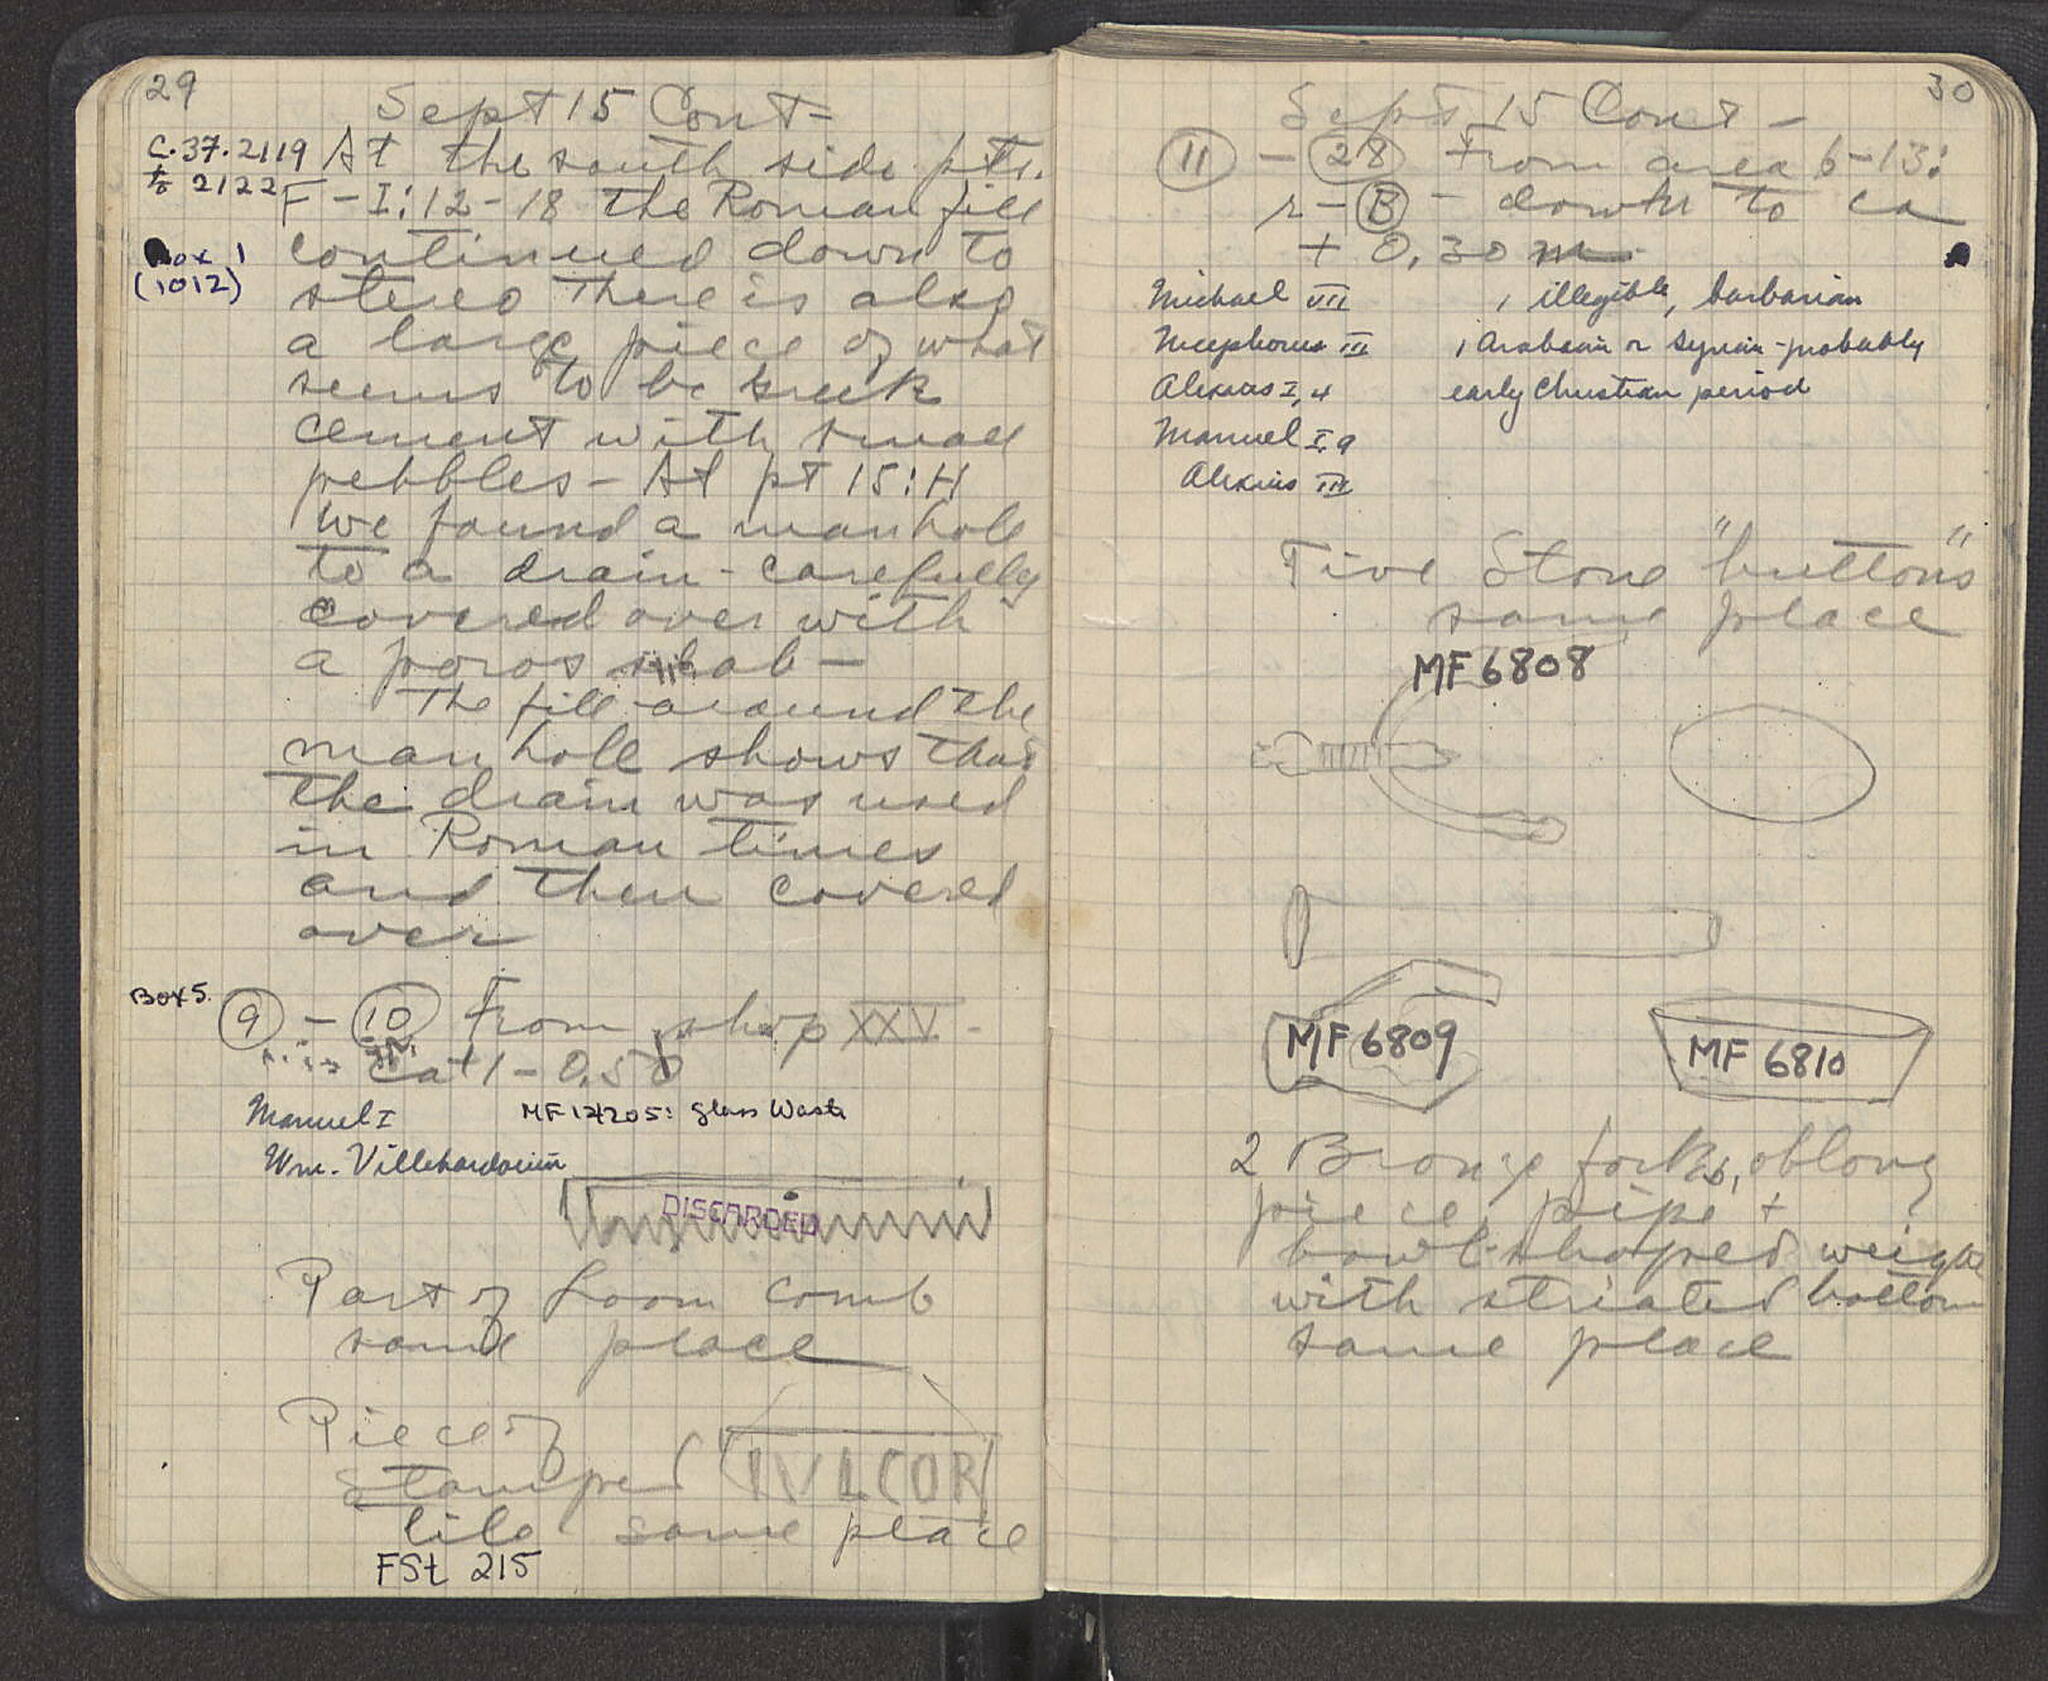 29
Sept 15 Cont-
C.37.2119
to 2122
At the south side pts.
F-I:12-18 the Roman fill
Box 1
(1012)
continued down to
stereo There is also
a large piece of what
seems to be Greek
cement with small
pebbles - At pt 15:H
we found a manhole
to a drain - carefully
covered over with
a poros slab -
The fill around the
manhole shows that
the drain was used
in Roman times
and then covered
over
Box 5.
9 - 10 From shop XXV -
ca + 1 - 0.50
Manuel I
MF 14205: Glass Waste
Wm. Villehardouin
DISCARDED
Part of Loom comb
same place
Piece of
stamped IVLCOR
tile same place
FSt 215
30
Sept 15 Cont -
11 - 28 From area 6-13:
r - B - down to ca
+ 0,30 m
Michael VII
1 illegible, barbarian
Nicephorus III
1 Arabian or Syrian - probably
Alexius I, 4
early Christian period
Manuel I, 9
Alexius III
Five Stone "buttons"
same place
MF 6808
MF 6809
MF 6810
2 Bronze forks, oblong
piece, pipe +
bowl-shaped weight
with striated bottom
same place